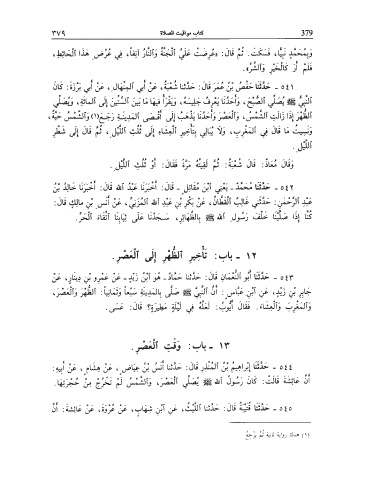 379 كتاب مواقيت الصلاة ٣٧٩
وَبِمُحَمَّدٍ نَبِيًّا، فَسَكَتَ. ثُمَّ قَالَ: «عُرِضَتْ عَلَيَّ الْجَنَّةُ وَالنَّارُ آنِفًا، فِي عُرْضِ هٰذَا الْحَائِطِ،
فَلَمْ أَرَ كَالْخَيْرِ وَالشَّرِّ».
٥٤١ - حَدَّثَنَا حَفْصُ بْنُ عُمَرَ قَالَ: حَدَّثَنَا شُعْبَةُ، عَنْ أَبِي الْمِنْهَالِ، عَنْ أَبِي بَرْزَةَ: كَانَ
النَّبِيُّ ﷺ يُصَلِّي الصُّبْحَ، وَأَحَدُنَا يَعْرِفُ جَلِيسَهُ، وَيَقْرَأُ فِيهَا مَا بَيْنَ السِّتِّينَ إِلَى الْمِائَةِ، وَيُصَلِّي
الظُّهْرَ إِذَا زَالَتِ الشَّمْسُ، وَالْعَصْرَ وَأَحَدُنَا يَذْهَبُ إِلَى أَقْصَى الْمَدِينَةِ رَجَعَ(١) وَالشَّمْسُ حَيَّةٌ،
وَنَسِيتُ مَا قَالَ فِي الْمَغْرِبِ، وَلَا يُبَالِي بِتَأْخِيرِ الْعِشَاءِ إِلَى ثُلُثِ اللَّيْلِ، ثُمَّ قَالَ إِلَى شَطْرِ
اللَّيْلِ.
وَقَالَ مُعَاذٌ: قَالَ شُعْبَةُ: ثُمَّ لَقِيتُهُ مَرَّةً فَقَالَ: أَوْ ثُلُثِ اللَّيْلِ.
٥٤٢ - حَدَّثَنَا مُحَمَّدٌ - يَعْنِي ابْنَ مُقَاتِلٍ - قَالَ: أَخْبَرَنَا عَبْدُ اللهِ قَالَ: أَخْبَرَنَا خَالِدُ بْنُ
عَبْدِ الرَّحْمٰنِ: حَدَّثَنِي غَالِبٌ الْقَطَّانُ، عَنْ بَكْرِ بْنِ عَبْدِ اللهِ الْمُزَنِيِّ، عَنْ أَنَسِ بْنِ مَالِكٍ قَالَ:
كُنَّا إِذَا صَلَّيْنَا خَلْفَ رَسُولِ اللهِ ﷺ بِالظَّهَائِرِ، سَجَدْنَا عَلَى ثِيَابِنَا اتِّقَاءَ الْحَرِّ.
١٢ - باب: تَأْخِيرِ الظُّهْرِ إِلَى الْعَصْرِ.
٥٤٣ - حَدَّثَنَا أَبُو النُّعْمَانِ قَالَ: حَدَّثَنَا حَمَّادٌ - هُوَ ابْنُ زَيْدٍ - عَنْ عَمْرِو بْنِ دِينَارٍ، عَنْ
جَابِرِ بْنِ زَيْدٍ، عَنِ ابْنِ عَبَّاسٍ: أَنَّ النَّبِيَّ ﷺ صَلَّى بِالْمَدِينَةِ سَبْعًا وَثَمَانِيًا: الظُّهْرَ وَالْعَصْرَ،
وَالْمَغْرِبَ وَالْعِشَاءَ. فَقَالَ أَيُّوبُ: لَعَلَّهُ فِي لَيْلَةٍ مَطِيرَةٍ؟ قَالَ: عَسَى.
١٣ - باب: وَقْتِ الْعَصْرِ.
٥٤٤ - حَدَّثَنَا إِبْرَاهِيمُ بْنُ الْمُنْذِرِ قَالَ: حَدَّثَنَا أَنَسُ بْنُ عِيَاضٍ، عَنْ هِشَامٍ، عَنْ أَبِيهِ:
أَنَّ عَائِشَةَ قَالَتْ: كَانَ رَسُولُ اللهِ ﷺ يُصَلِّي الْعَصْرَ، وَالشَّمْسُ لَمْ تَخْرُجْ مِنْ حُجْرَتِهَا.
٥٤٥ - حَدَّثَنَا قُتَيْبَةُ قَالَ: حَدَّثَنَا اللَّيْثُ، عَنِ ابْنِ شِهَابٍ، عَنْ عُرْوَةَ، عَنْ عَائِشَةَ: أَنَّ
(١) هناك رواية ثانية ثُمَّ يَرْجِعُ